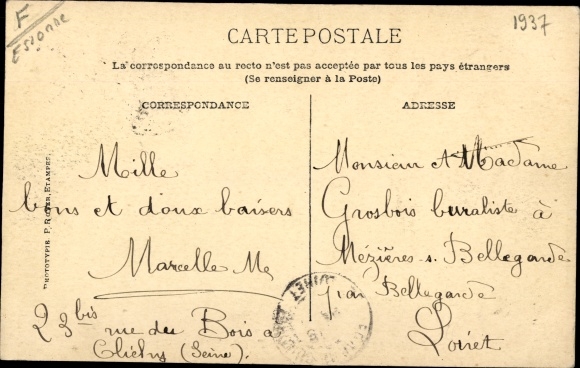 F
Essonne
1937
CARTE POSTALE
La correspondance au recto n'est pas acceptée par tous les pays étrangers
(Se renseigner à la Poste)
CORRESPONDANCE
ADRESSE
Mille
bons et doux baisers
Marcelle Me
23bis rue du Bois à
Clichy (Seine).
Monsieur et Madame
Grosbois buraliste à
Mézières-s. Bellegarde
par Bellegarde
Loiret
PHOTOTYPIE P. ROYER, ETAMPES